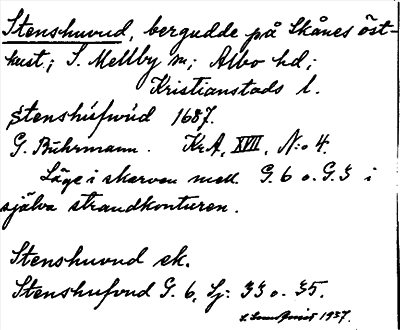 Stenshuvud, bergudde på Skånes öst-
kust; S. Mellby sn; Albo hd;
Kristianstads l.
Stenshúfwúd 1687.
G. Buhrmann. KrA, XVII, N:o 4.
Läge i skarven mell. G. 6 o. G. 5 i
själva strandkonturen.
Stenshuvud ek.
Stenshufvud G. 6, Sj: 33 o. 35.
1937.